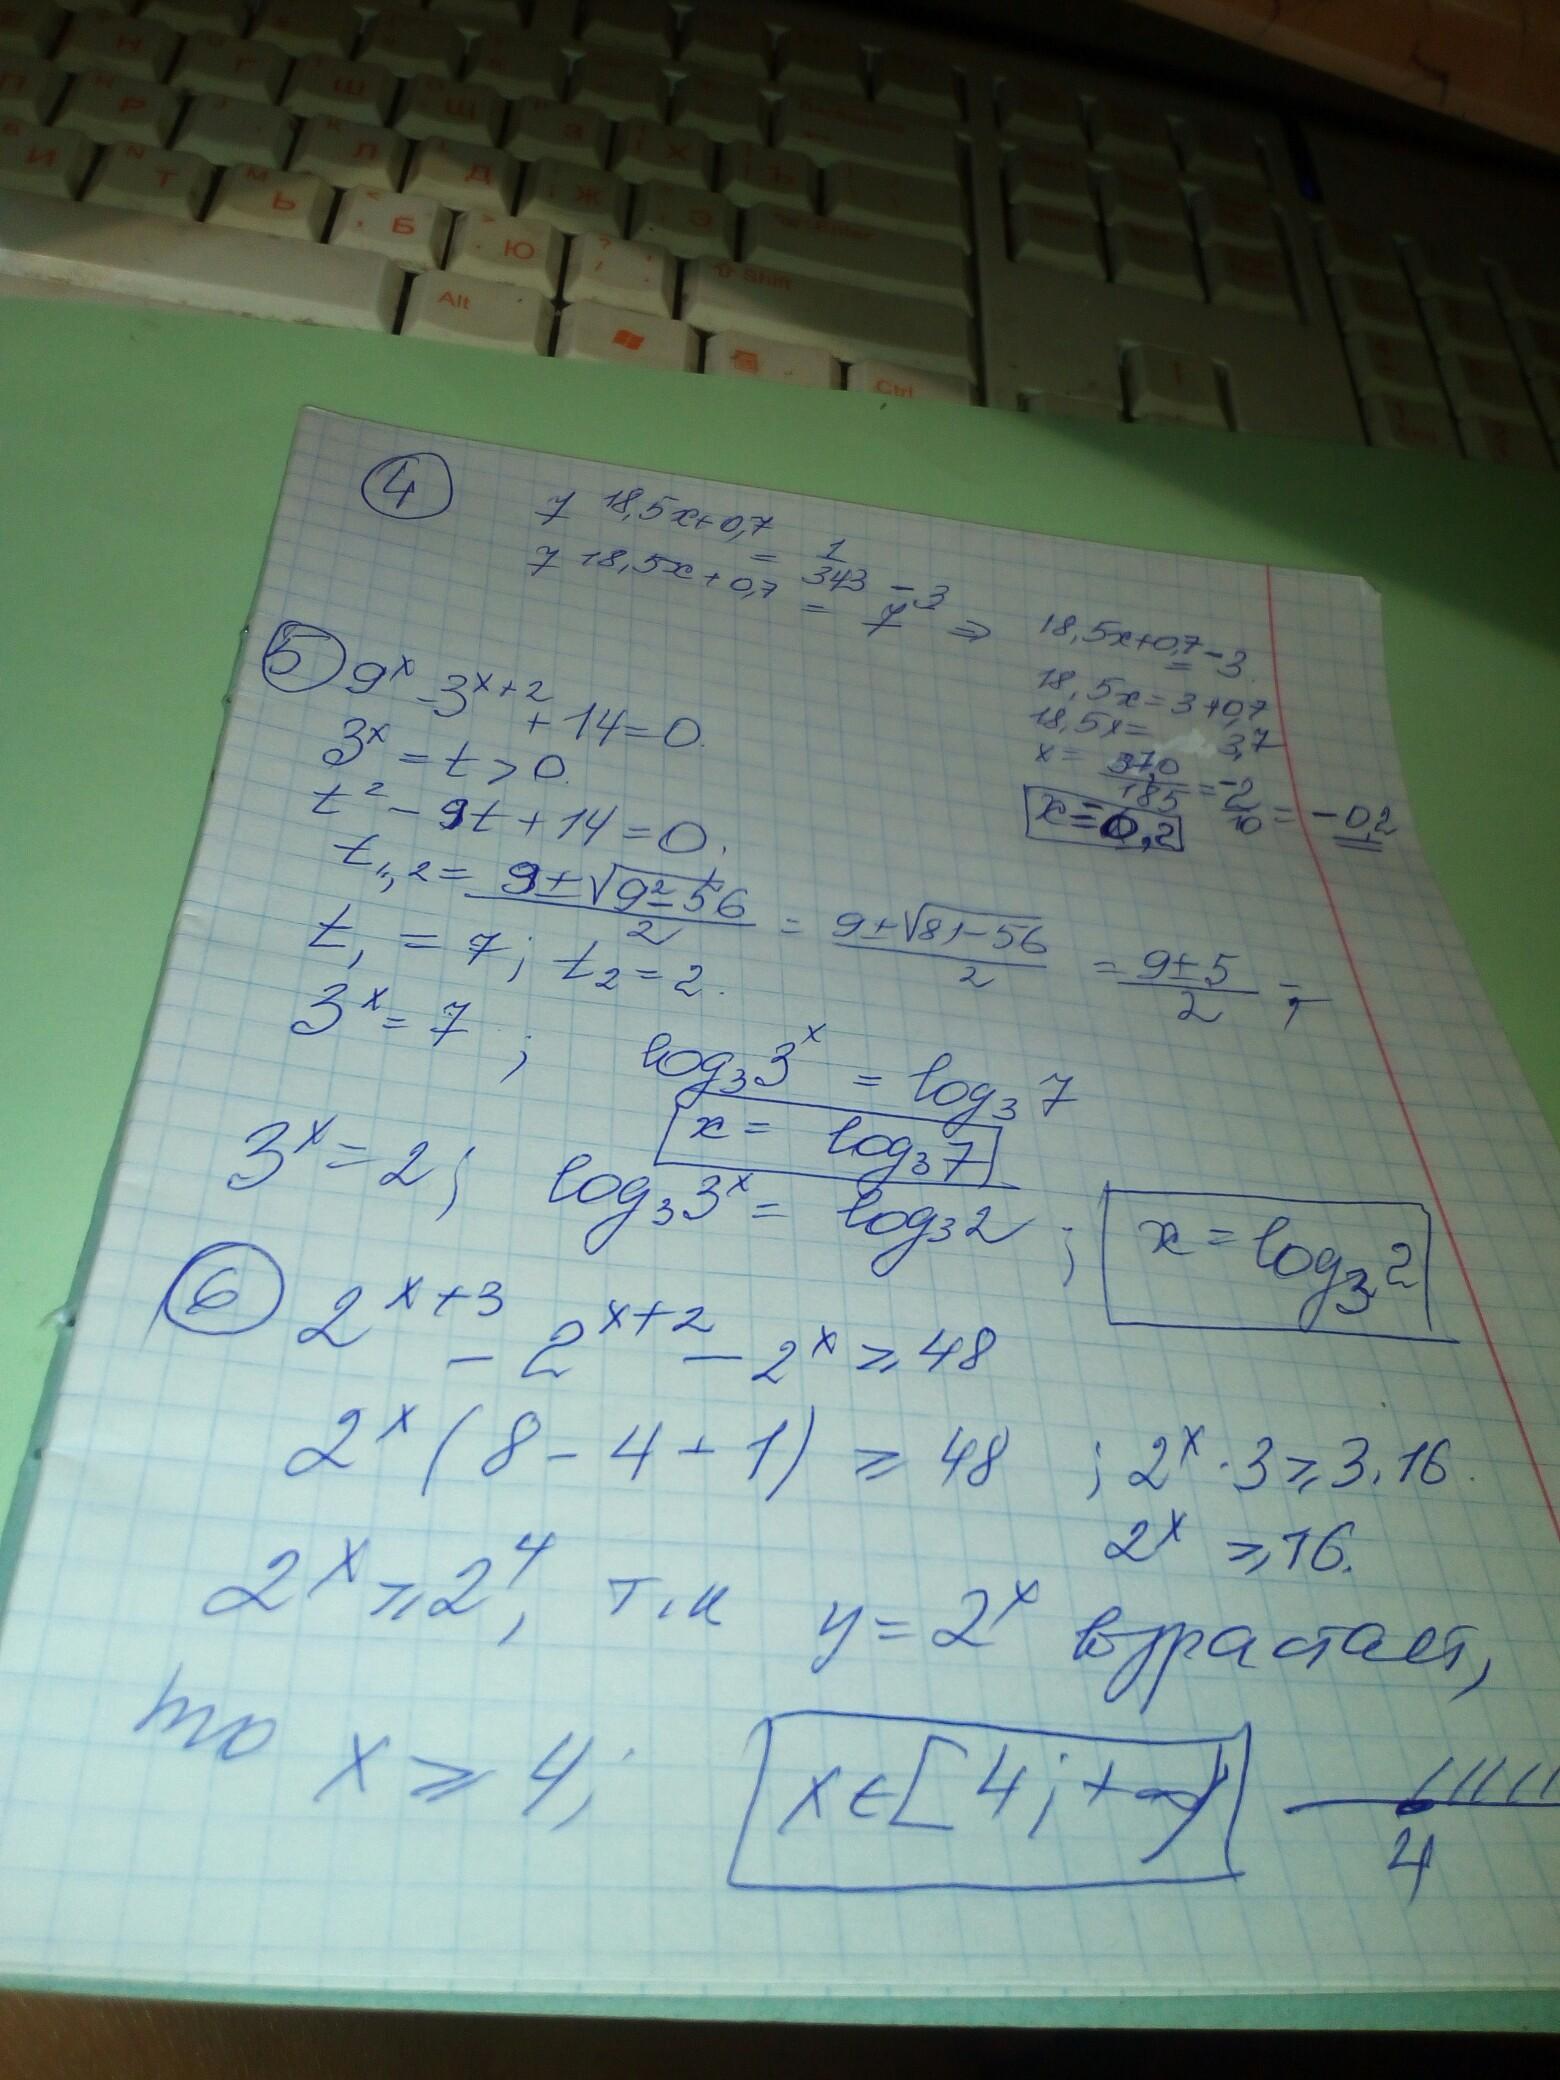 Н Г Ш
П Р Л Щ З
И Т Ь Б Ю Д Ж Х Э Ъ
Enter
Shift
Alt
Ctrl
4 7^(18,5x+0,7) = 1/343
7^(18,5x+0,7) = 7^(-3) ⇒ 18,5x+0,7 = -3
18,5x = 3+0,7
18,5x = 3,7
x = 37,0/185 = -2/10 = -0,2
x = 0,2
5 9^x - 3^(x+2) + 14 = 0.
3^x = t > 0.
t² - 9t + 14 = 0;
t₁,₂ = (9±√(9²-56))/2 = (9±√(81-56))/2 = (9±5)/2 =
t₁ = 7; t₂ = 2.
3^x = 7; log₃3^x = log₃7
x = log₃7
3^x = 2; log₃3^x = log₃2; x = log₃2
6 2^(x+3) - 2^(x+2) - 2^x ≥ 48
2^x (8 - 4 - 1) ≥ 48; 2^x · 3 ≥ 3·16.
2^x ≥ 16.
2^x ≥ 2^4, т.к y = 2^x возрастает,
то x ≥ 4; x ∈ [4; +∞)
4